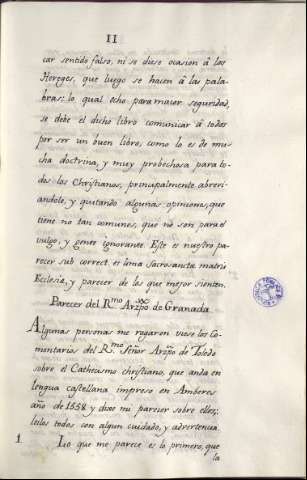 II
car sentido falso, ni se diese ocasion â las
Hereges, que luego se hacen â las pala-
bras: lo qual echo para maior seguridad,
se debe el dicho libro comunicar â todos
por ser un buen libro, como lo es de mu-
cha doctrina, y muy probechosa para to-
dos los Christianos, principalmente abrevi-
andole, y quitando algunas opiniones, que
tiene no tan comunes, que no son para el
vulgo, y gente ignorante. Este es nuestro pa-
recer sub correct. et lima sacrosanctæ matris
Ecclesiæ, y parecer de los que mejor sienten.
Parecer del Rmo. Arzpo. de Granada.
Algunas personas me rogaron viese los Co-
mentarios del Rmo. Señor Arzpo. de Toledo
sobre el Cathecismo christiano, que anda en
lengua castellana impreso en Amberes
año de 1558. y diese mi parecer sobre ellos;
leilos todos con algun cuidado, y advertencia.
1 Lo que me parece es lo primero, que
la